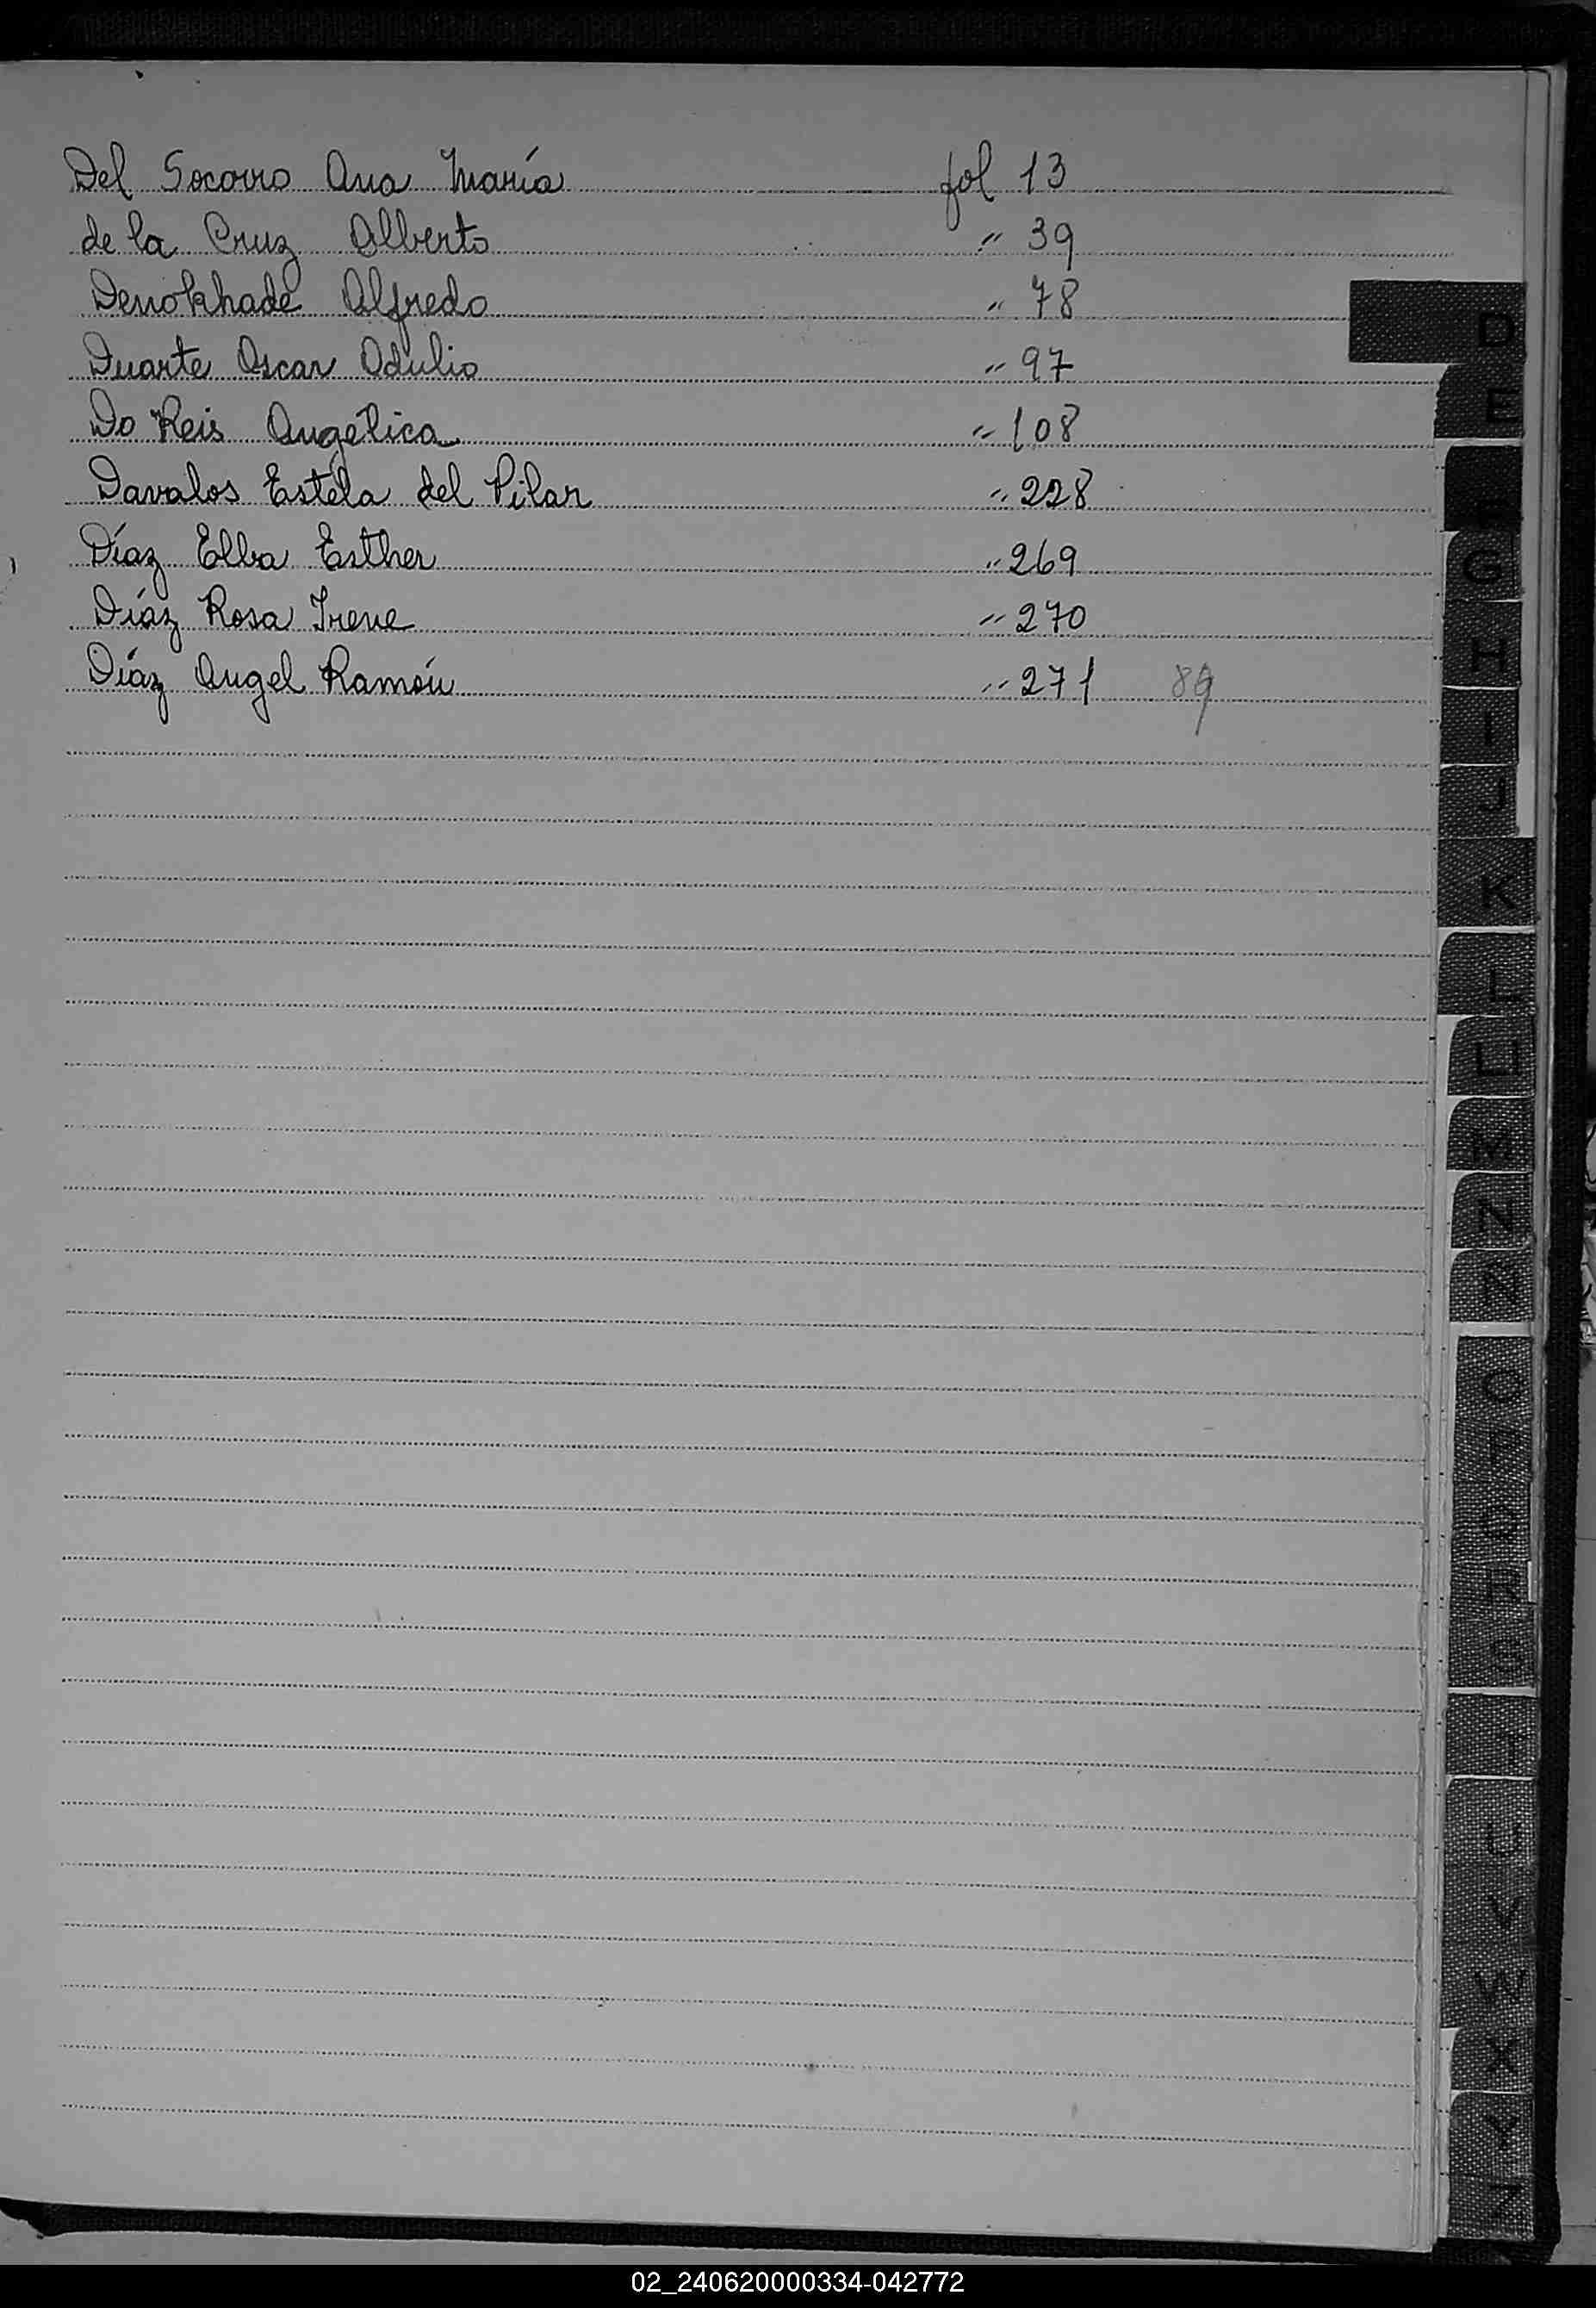 Del Socorro Ana María fol 13
de la Cruz Alberto " 39
Denokhade Alfredo " 78
Duarte Oscar Odulio " 97
Do Reis Angélica " 108
Davalos Estela del Pilar " 228
Díaz Elba Esther " 269
Díaz Rosa Irene " 270
Díaz Angel Ramón " 271 89
D
E
G
H
I
J
K
L
LL
M
N
Ñ
O
P
Q
R
S
T
U
V
W
X
Y
Z
02_240620000334-042772